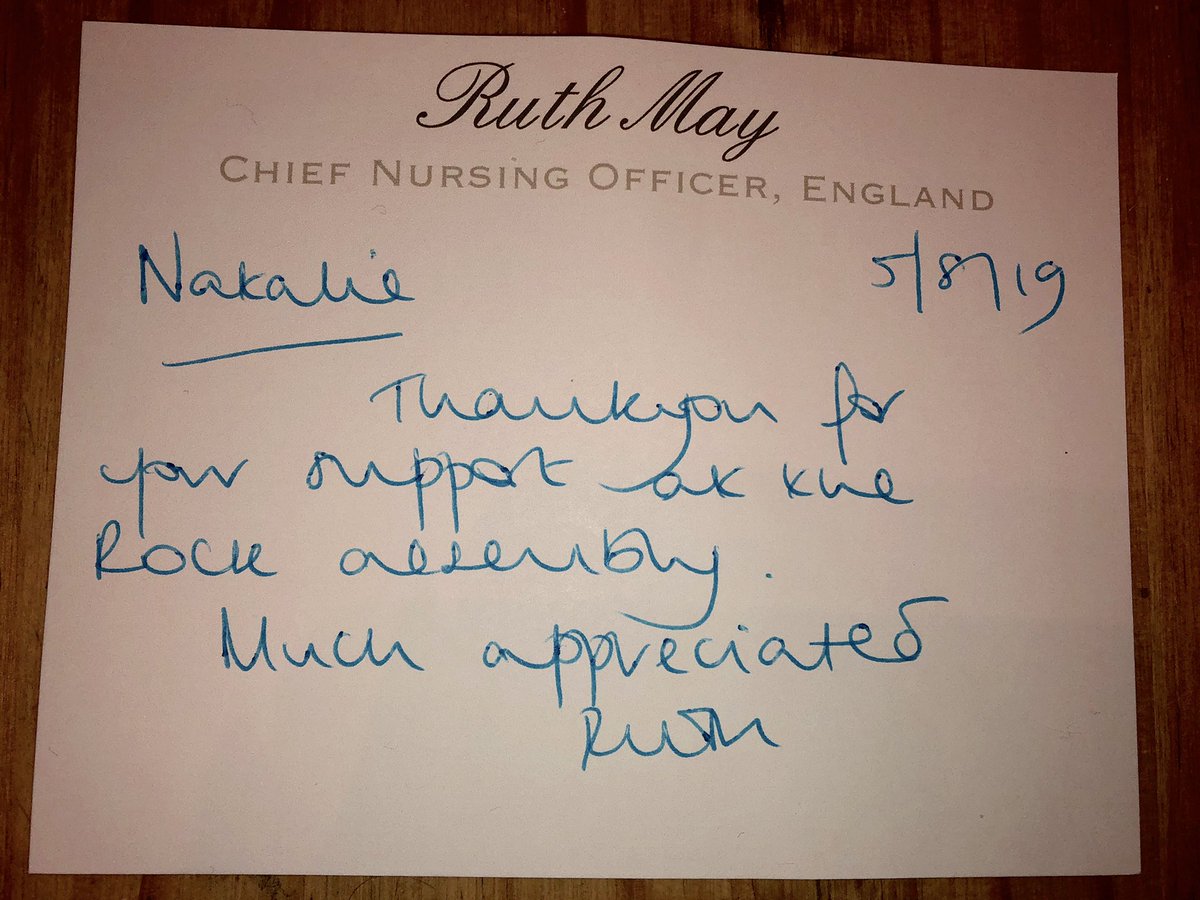 Ruth May
CHIEF NURSING OFFICER, ENGLAND
Natalie 5/8/19
Thankyou for
your support at the
Rock assembly.
Much appreciated
Ruth